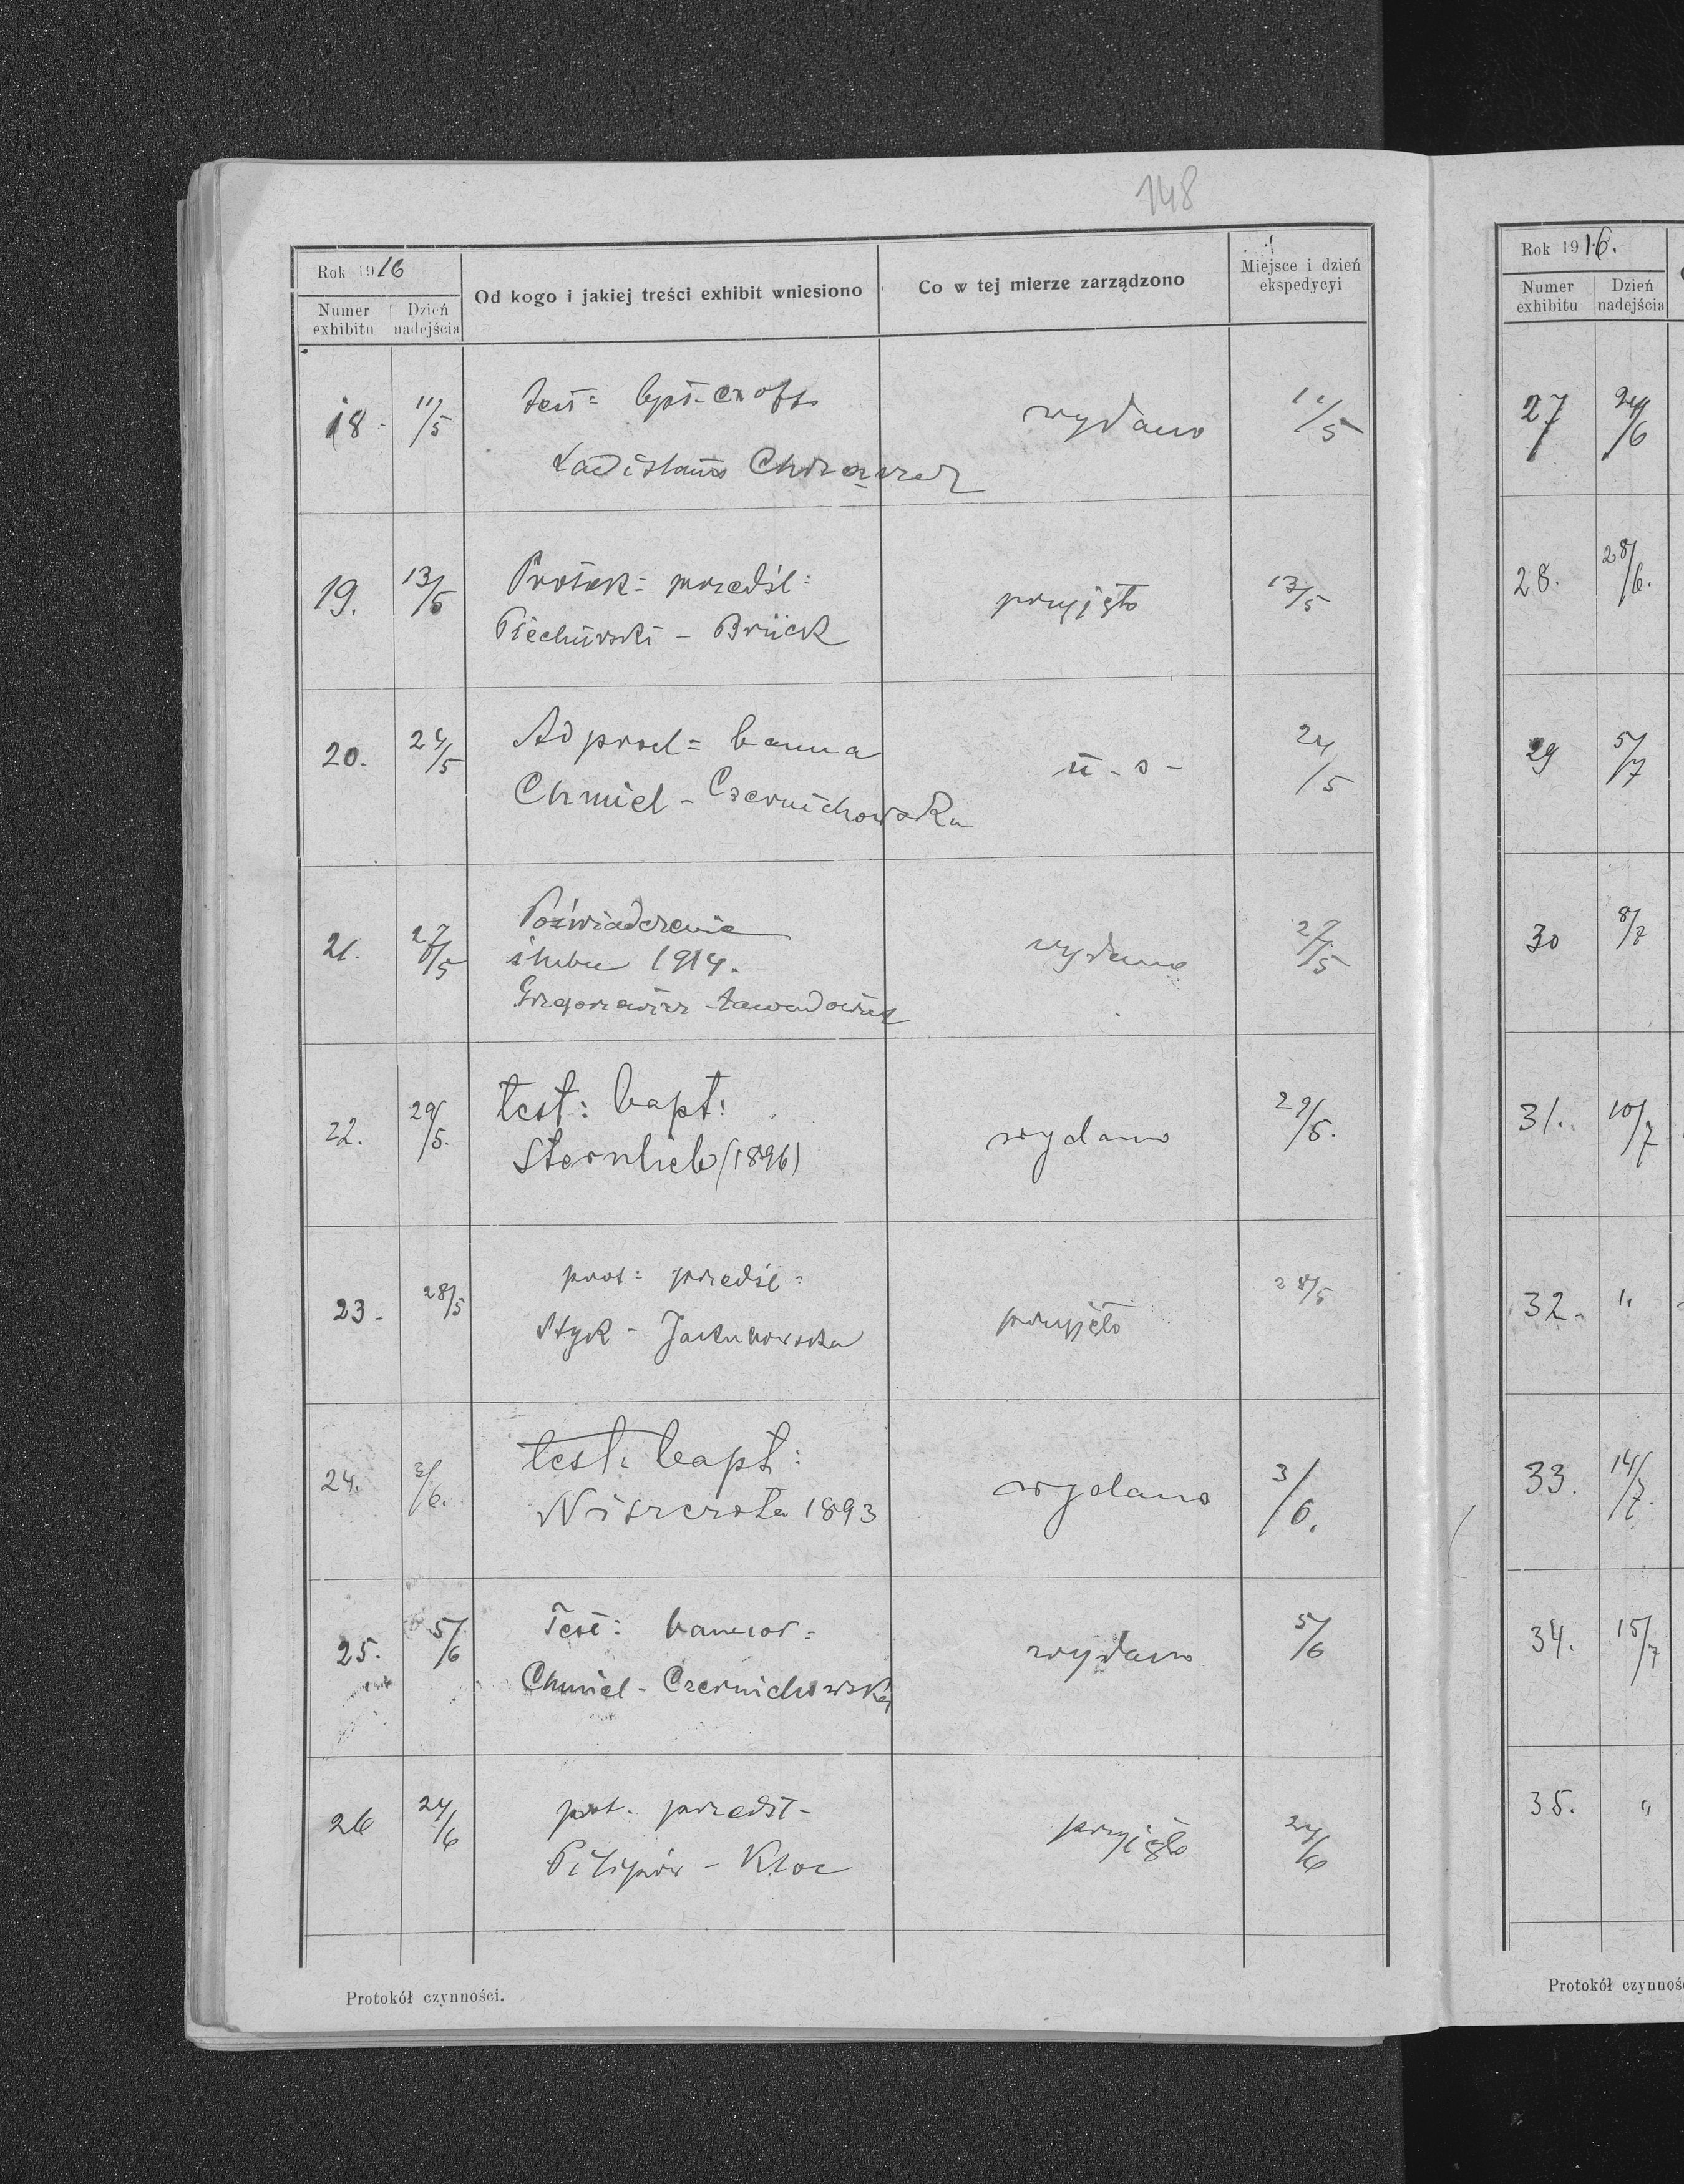 148
Rok 1916
Numer exhibitu
Dzień nadejścia
Od kogo i jakiej treści exhibit wniesiono
Co w tej mierze zarządzono
Miejsce i dzień ekspedycyi
18. 11/5 test= bpt= ex offo wydano 11/5
Ladislaus
19. 13/5 Protok= przedśl: przyjęto 13/5
Piechurski - Brück
20. 24/5 Ad prod= banna u - s - 24/5
Chmiel - Czernichowska
21. 27/5 Poświadczenie wydano 27/5
ślubu 1914.
Grzegorzewicz
22. 29/5. test: bapt: wydano 29/5.
Sternlieb (1896)
23. 28/5 prot= przedśl= przyjęto 28/5
Styk - Jackowska
24. 3/6. test: bapt: wydano 3/6.
Niszczota 1893
25. 5/6 Test: bannor= wydano 5/6
Chmiel - Czernichowska
26 24/6 prot. przedśl- przyjęto 24/6
Pilipów - Kloc
Protokół czynności.
Rok 1916.
Numer exhibitu
Dzień nadejścia
27 24/6
28. 28/6.
29 5/7
30 8/7
31. 10/7
32. "
33. 14/7.
34. 15/7
35. "
Protokół czynnoś